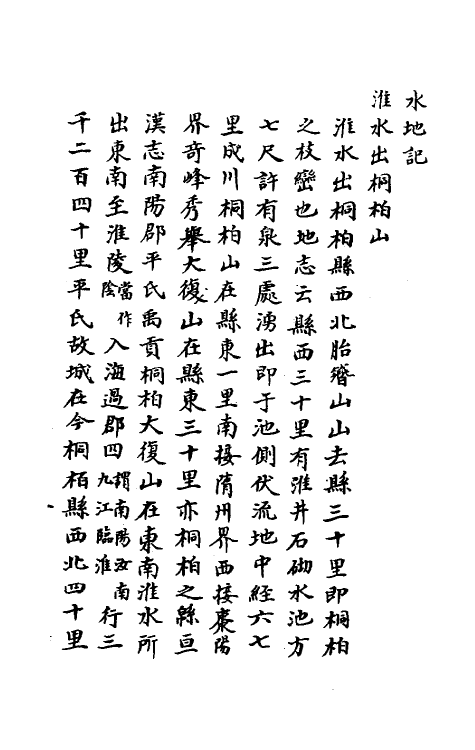 水地記
淮水出桐柏山
淮水出桐柏縣西北胎簪山山去縣三十里即桐柏
之枝巒也地志云縣西三十里有淮井石砌水池方
七尺許有泉三處湧出即于池側伏流地中經六七
里成川桐柏山在縣東一里南接隋州界西接棗陽
界奇峰秀舉大復山在縣東三十里亦桐柏之緜亘
漢志南陽郡平氏禹貢桐柏大復山在東南淮水所
出東南至淮陵當作陰入海過郡四謂南陽汝南九江臨淮行三
千二百四十里平氏故城在今桐栢縣西北四十里